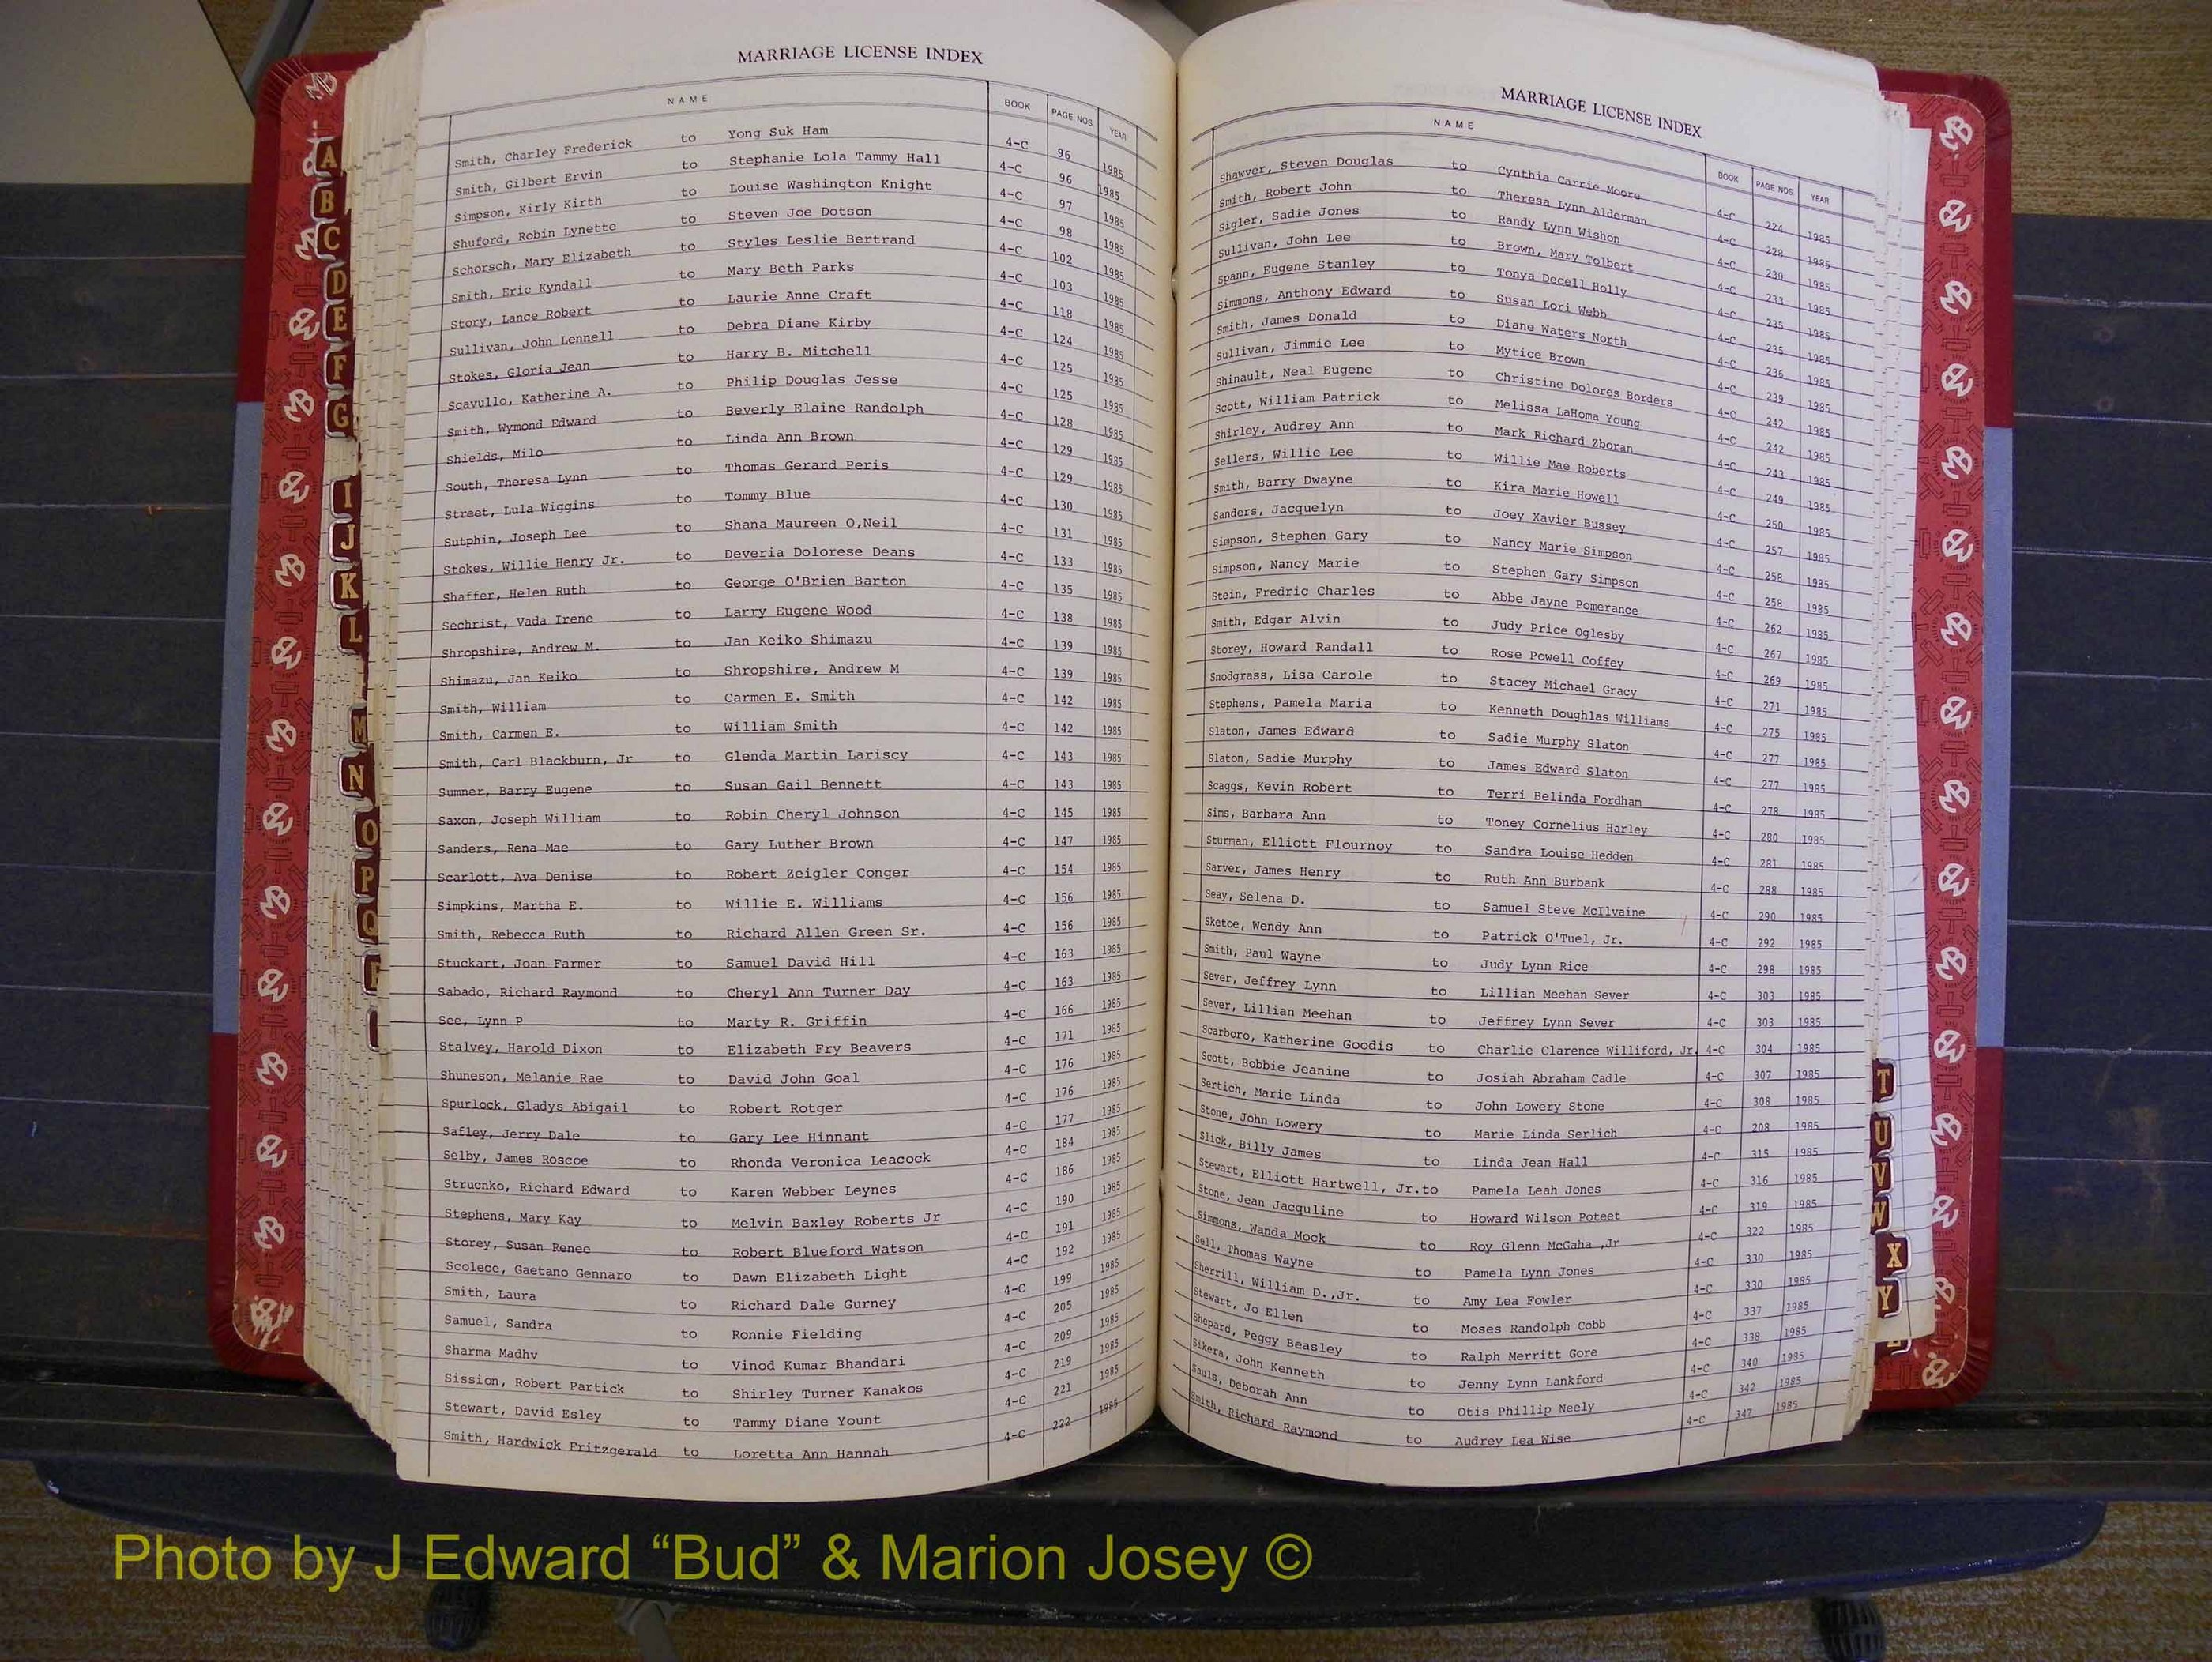 MARRIAGE LICENSE INDEX
NAME BOOK PAGE NOS. YEAR
Smith, Charley Frederick to Yong Suk Ham 4-C 96 1985
Smith, Gilbert Ervin to Stephanie Lola Tammy Hall 4-C 96 1985
Simpson, Kirly Kirth to Louise Washington Knight 4-C 97 1985
Shuford, Robin Lynette to Steven Joe Dotson 4-C 98 1985
Schorsch, Mary Elizabeth to Styles Leslie Bertrand 4-C 102 1985
Smith, Eric Kyndall to Mary Beth Parks 4-C 103 1985
Story, Lance Robert to Laurie Anne Craft 4-C 118 1985
Sullivan, John Lennell to Debra Diane Kirby 4-C 124 1985
Stokes, Gloria Jean to Harry B. Mitchell 4-C 125 1985
Scavullo, Katherine A. to Philip Douglas Jesse 4-C 125 1985
Smith, Wymond Edward to Beverly Elaine Randolph 4-C 128 1985
Shields, Milo to Linda Ann Brown 4-C 129 1985
South, Theresa Lynn to Thomas Gerard Peris 4-C 129 1985
Street, Lula Wiggins to Tommy Blue 4-C 130 1985
Sutphin, Joseph Lee to Shana Maureen O,Neil 4-C 131 1985
Stokes, Willie Henry Jr. to Deveria Dolorese Deans 4-C 133 1985
Shaffer, Helen Ruth to George O'Brien Barton 4-C 135 1985
Sechrist, Vada Irene to Larry Eugene Wood 4-C 138 1985
Shropshire, Andrew M. to Jan Keiko Shimazu 4-C 139 1985
Shimazu, Jan Keiko to Shropshire, Andrew M 4-C 139 1985
Smith, William to Carmen E. Smith 4-C 142 1985
Smith, Carmen E. to William Smith 4-C 142 1985
Smith, Carl Blackburn, Jr to Glenda Martin Lariscy 4-C 143 1985
Sumner, Barry Eugene to Susan Gail Bennett 4-C 143 1985
Saxon, Joseph William to Robin Cheryl Johnson 4-C 145 1985
Sanders, Rena Mae to Gary Luther Brown 4-C 147 1985
Scarlott, Ava Denise to Robert Zeigler Conger 4-C 154 1985
Simpkins, Martha E. to Willie E. Williams 4-C 156 1985
Smith, Rebecca Ruth to Richard Allen Green Sr. 4-C 156 1985
Stuckart, Joan Farmer to Samuel David Hill 4-C 163 1985
Sabado, Richard Raymond to Cheryl Ann Turner Day 4-C 163 1985
See, Lynn P to Marty R. Griffin 4-C 166 1985
Stalvey, Harold Dixon to Elizabeth Fry Beavers 4-C 171 1985
Shuneson, Melanie Rae to David John Goal 4-C 176 1985
Spurlock, Gladys Abigail to Robert Rotger 4-C 176 1985
Safley, Jerry Dale to Gary Lee Hinnant 4-C 177 1985
Selby, James Roscoe to Rhonda Veronica Leacock 4-C 184 1985
Strucnko, Richard Edward to Karen Webber Leynes 4-C 186 1985
Stephens, Mary Kay to Melvin Baxley Roberts Jr 4-C 190 1985
Storey, Susan Renee to Robert Blueford Watson 4-C 191 1985
Scolece, Gaetano Gennaro to Dawn Elizabeth Light 4-C 192 1985
Smith, Laura to Richard Dale Gurney 4-C 199 1985
Samuel, Sandra to Ronnie Fielding 4-C 205 1985
Sharma Madhv to Vinod Kumar Bhandari 4-C 209 1985
Sission, Robert Partick to Shirley Turner Kanakos 4-C 219 1985
Stewart, David Esley to Tammy Diane Yount 4-C 221 1985
Smith, Hardwick Fritzgerald to Loretta Ann Hannah 4-C 222 1985
MARRIAGE LICENSE INDEX
NAME BOOK PAGE NOS. YEAR
Shawver, Steven Douglas to Cynthia Carrie Moore 4-C 224 1985
Smith, Robert John to Theresa Lynn Alderman 4-C 228 1985
Sigler, Sadie Jones to Randy Lynn Wishon 4-C 230 1985
Sullivan, John Lee to Brown, Mary Tolbert 4-C 233 1985
Spann, Eugene Stanley to Tonya Decell Holly 4-C 235 1985
Simmons, Anthony Edward to Susan Lori Webb 4-C 235 1985
Smith, James Donald to Diane Waters North 4-C 236 1985
Sullivan, Jimmie Lee to Mytice Brown 4-C 239 1985
Shinault, Neal Eugene to Christine Dolores Borders 4-C 242 1985
Scott, William Patrick to Melissa LaHoma Young 4-C 242 1985
Shirley, Audrey Ann to Mark Richard Zboran 4-C 243 1985
Sellers, Willie Lee to Willie Mae Roberts 4-C 249 1985
Smith, Barry Dwayne to Kira Marie Howell 4-C 250 1985
Sanders, Jacquelyn to Joey Xavier Bussey 4-C 257 1985
Simpson, Stephen Gary to Nancy Marie Simpson 4-C 258 1985
Simpson, Nancy Marie to Stephen Gary Simpson 4-C 258 1985
Stein, Fredric Charles to Abbe Jayne Pomerance 4-C 262 1985
Smith, Edgar Alvin to Judy Price Oglesby 4-C 267 1985
Storey, Howard Randall to Rose Powell Coffey 4-C 269 1985
Snodgrass, Lisa Carole to Stacey Michael Gracy 4-C 271 1985
Stephens, Pamela Maria to Kenneth Doughlas Williams 4-C 275 1985
Slaton, James Edward to Sadie Murphy Slaton 4-C 277 1985
Slaton, Sadie Murphy to James Edward Slaton 4-C 277 1985
Scaggs, Kevin Robert to Terri Belinda Fordham 4-C 278 1985
Sims, Barbara Ann to Toney Cornelius Harley 4-C 280 1985
Sturman, Elliott Flournoy to Sandra Louise Hedden 4-C 281 1985
Sarver, James Henry to Ruth Ann Burbank 4-C 288 1985
Seay, Selena D. to Samuel Steve McIlvaine 4-C 290 1985
Sketoe, Wendy Ann to Patrick O'Tuel, Jr. 4-C 292 1985
Smith, Paul Wayne to Judy Lynn Rice 4-C 298 1985
Sever, Jeffrey Lynn to Lillian Meehan Sever 4-C 303 1985
Sever, Lillian Meehan to Jeffrey Lynn Sever 4-C 303 1985
Scarboro, Katherine Goodis to Charlie Clarence Williford, Jr. 4-C 304 1985
Scott, Bobbie Jeanine to Josiah Abraham Cadle 4-C 307 1985
Sertich, Marie Linda to John Lowery Stone 4-C 308 1985
Stone, John Lowery to Marie Linda Serlich 4-C 208 1985
Slick, Billy James to Linda Jean Hall 4-C 315 1985
Stewart, Elliott Hartwell, Jr.to Pamela Leah Jones 4-C 316 1985
Stone, Jean Jacquline to Howard Wilson Poteet 4-C 319 1985
Simmons, Wanda Mock to Roy Glenn McGaha ,Jr 4-C 322 1985
Sell, Thomas Wayne to Pamela Lynn Jones 4-C 330 1985
Sherrill, William D.,Jr. to Amy Lea Fowler 4-C 330 1985
Stewart, Jo Ellen to Moses Randolph Cobb 4-C 337 1985
Shepard, Peggy Beasley to Ralph Merritt Gore 4-C 338 1985
Sikera, John Kenneth to Jenny Lynn Lankford 4-C 340 1985
Sauls, Deborah Ann to Otis Phillip Neely 4-C 342 1985
Smith, Richard Raymond to Audrey Lea Wise 4-C 347 1985
A
B
C
D
E
F
G
I
J
K
L
M
N
O
P
Q
T
U
V
W
X
Y
Photo by J Edward “Bud” & Marion Josey ©